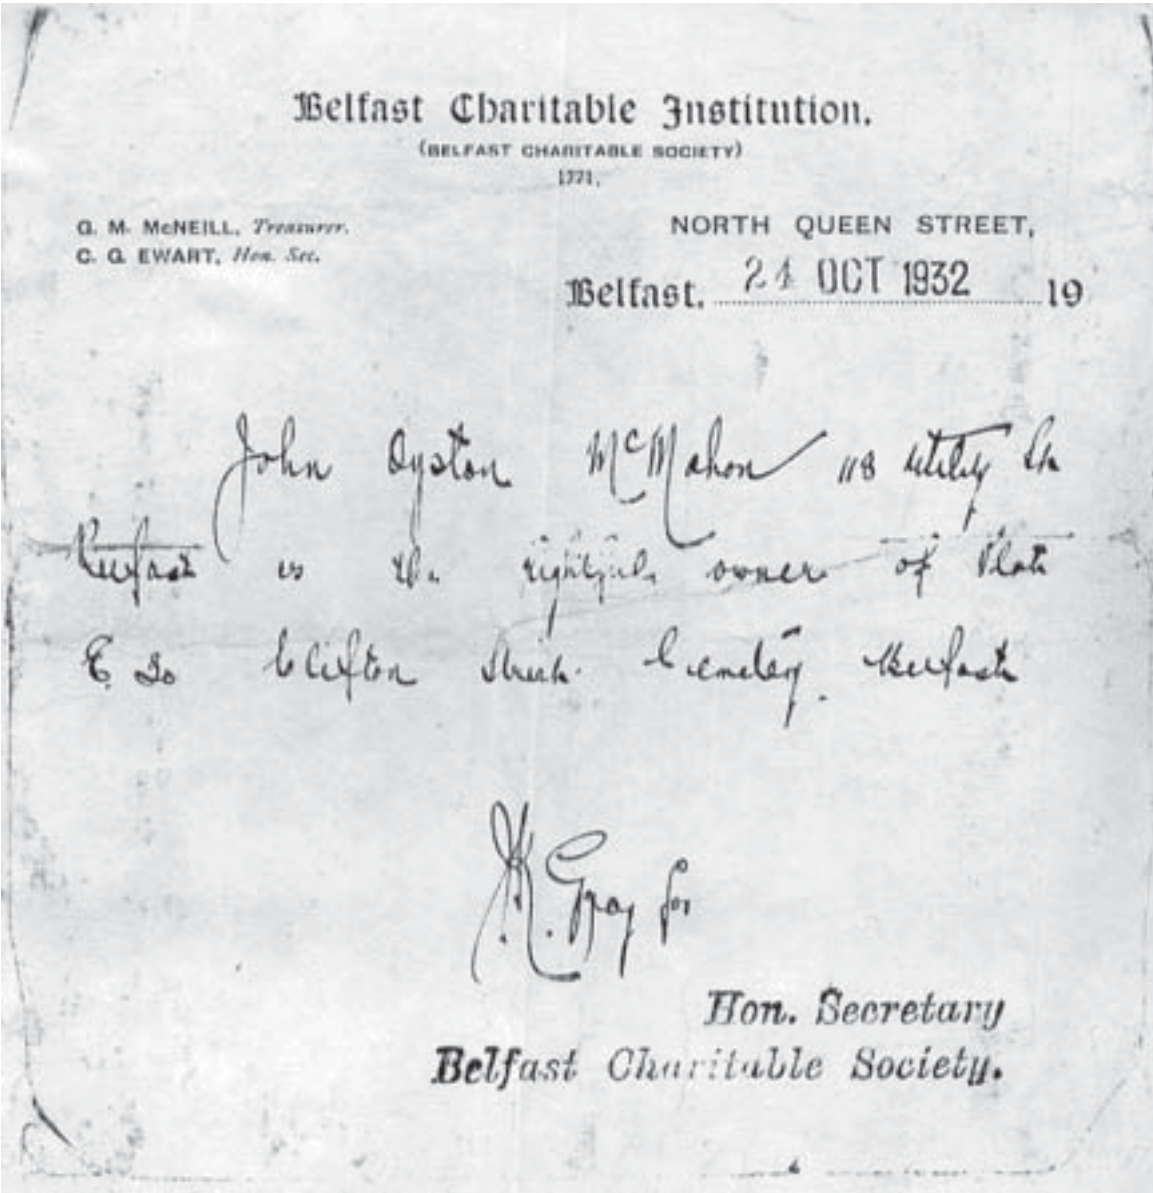 Belfast Charitable Institution.
(BELFAST CHARITABLE SOCIETY)
1771.
G. M. McNEILL, Treasurer.
C. G. EWART, Hon. Sec.
NORTH QUEEN STREET,
Belfast, 24 OCT 1932 19
John Oyston McMahon 118
Belfast is the rightful owner of Plot
Clifton Street Cemetery. Belfast
Gray for
Hon. Secretary
Belfast Charitable Society.